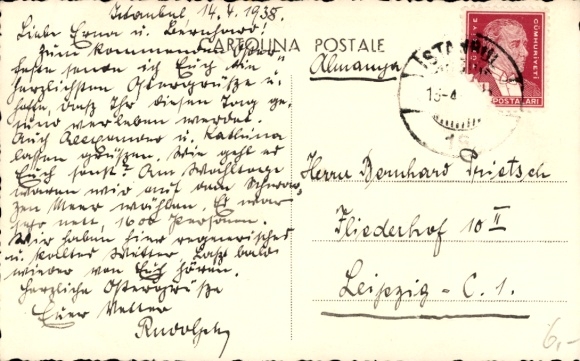 Istanbul, 14.4.1938.
Liebe Erna u. Bernhard!
Zum kommenden Oster-
feste sende ich Euch die
herzlichsten Ostergrüsse u.
hoffe, dass Ihr diesen Tag ge-
sund verleben werdet.
Auch Alexander u. Kathina
lassen grüssen. Wie geht es
Euch sonst? Am Wahltage
waren wir auf dem Schwar-
zen Meer wählen. Es war
sehr nett, 1600 Personen.
Wir haben hier regnerisches
u. kaltes Wetter. Lasst bald
wieder von Euch hören.
Herzliche Ostergrüsse
Euer Vetter
Rudolph
CARTOLINA POSTALE
Almanya
ISTANBUL
CUMHURIYETI
POSTALARI
Herrn Bernhard Prietsch
Fliederhof 10 II
Leipzig - C. 1.
6,-